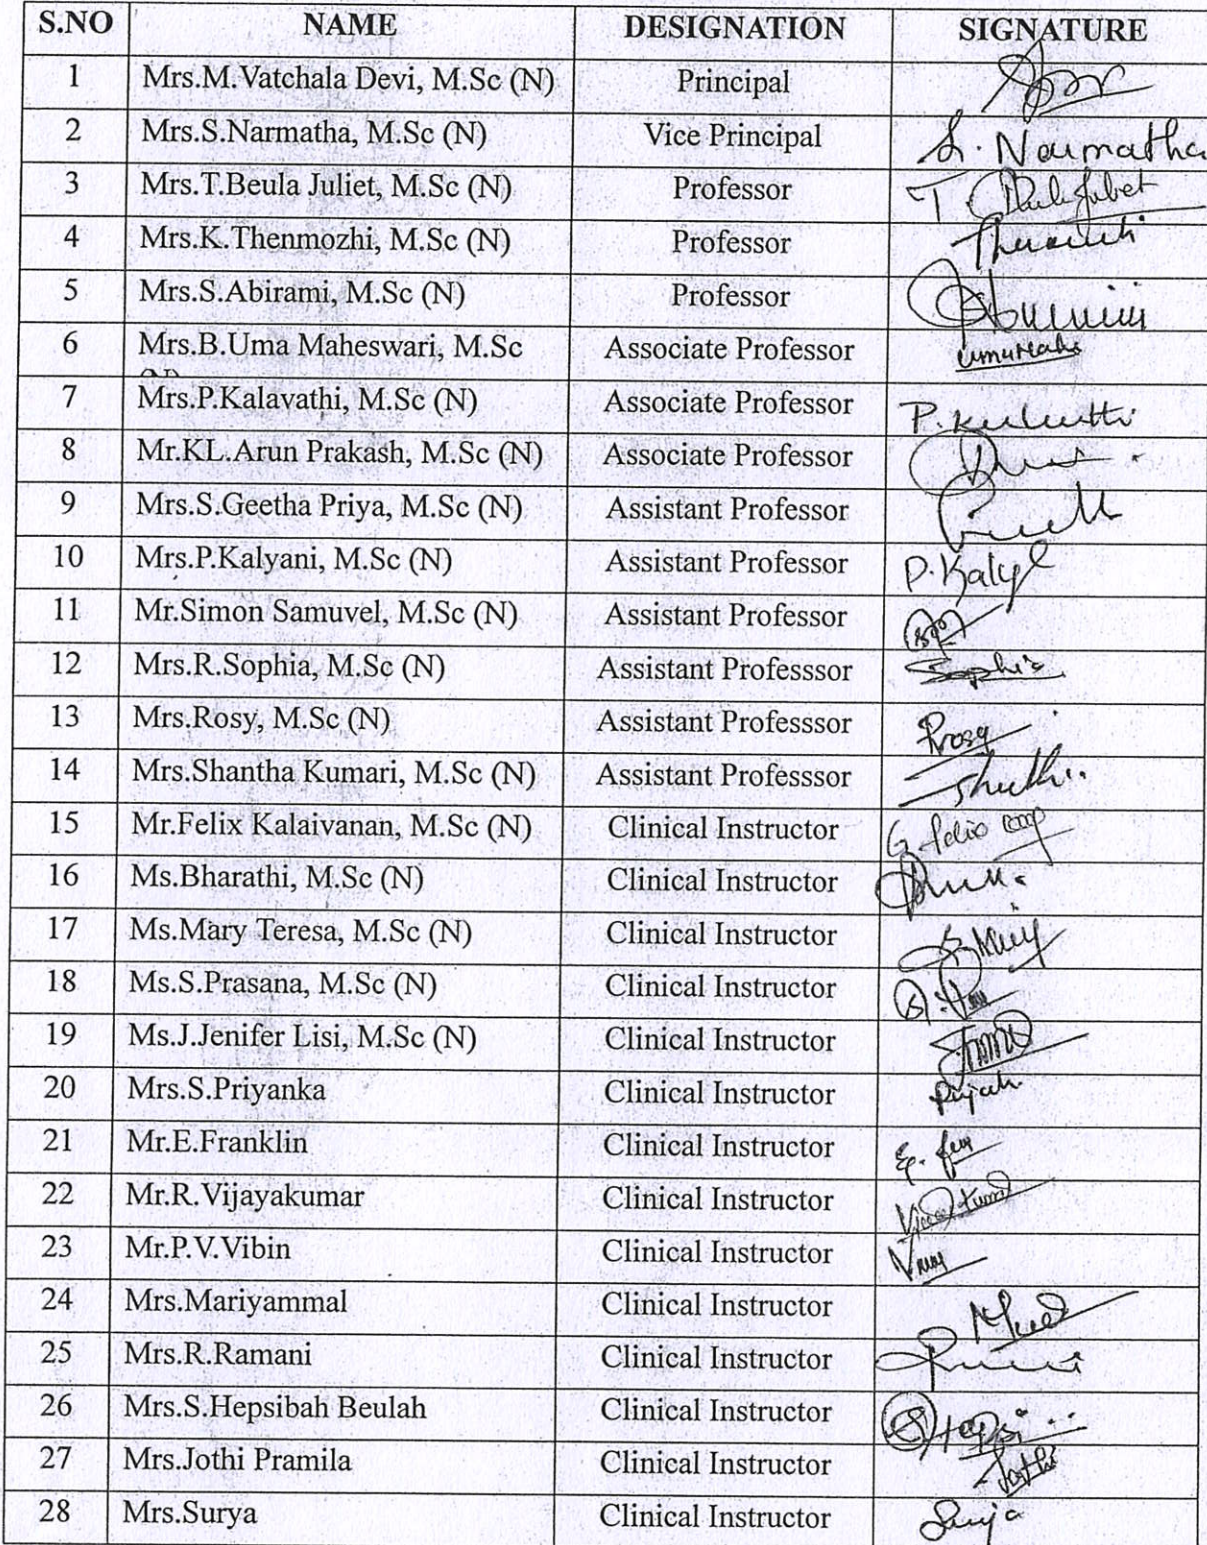 S.NO NAME DESIGNATION SIGNATURE
1 Mrs.M.Vatchala Devi, M.Sc (N) Principal
2 Mrs.S.Narmatha, M.Sc (N) Vice Principal S. Narmatha
3 Mrs.T.Beula Juliet, M.Sc (N) Professor
4 Mrs.K.Thenmozhi, M.Sc (N) Professor
5 Mrs.S.Abirami, M.Sc (N) Professor
6 Mrs.B.Uma Maheswari, M.Sc Associate Professor
7 Mrs.P.Kalavathi, M.Sc (N) Associate Professor
8 Mr.KL.Arun Prakash, M.Sc (N) Associate Professor
9 Mrs.S.Geetha Priya, M.Sc (N) Assistant Professor
10 Mrs.P.Kalyani, M.Sc (N) Assistant Professor
11 Mr.Simon Samuvel, M.Sc (N) Assistant Professor
12 Mrs.R.Sophia, M.Sc (N) Assistant Professsor
13 Mrs.Rosy, M.Sc (N) Assistant Professsor
14 Mrs.Shantha Kumari, M.Sc (N) Assistant Professsor
15 Mr.Felix Kalaivanan, M.Sc (N) Clinical Instructor
16 Ms.Bharathi, M.Sc (N) Clinical Instructor
17 Ms.Mary Teresa, M.Sc (N) Clinical Instructor
18 Ms.S.Prasana, M.Sc (N) Clinical Instructor
19 Ms.J.Jenifer Lisi, M.Sc (N) Clinical Instructor
20 Mrs.S.Priyanka Clinical Instructor
21 Mr.E.Franklin Clinical Instructor
22 Mr.R.Vijayakumar Clinical Instructor
23 Mr.P.V.Vibin Clinical Instructor
24 Mrs.Mariyammal Clinical Instructor
25 Mrs.R.Ramani Clinical Instructor
26 Mrs.S.Hepsibah Beulah Clinical Instructor
27 Mrs.Jothi Pramila Clinical Instructor
28 Mrs.Surya Clinical Instructor